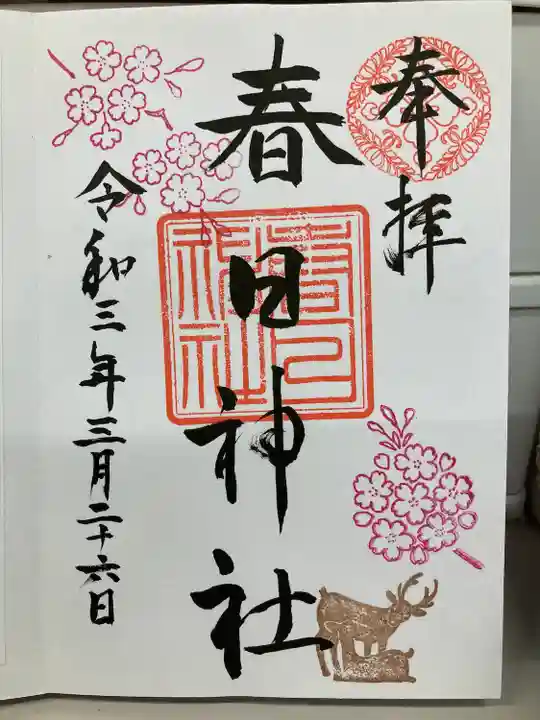 奉拝
春日神社
令和三年三月二十六日